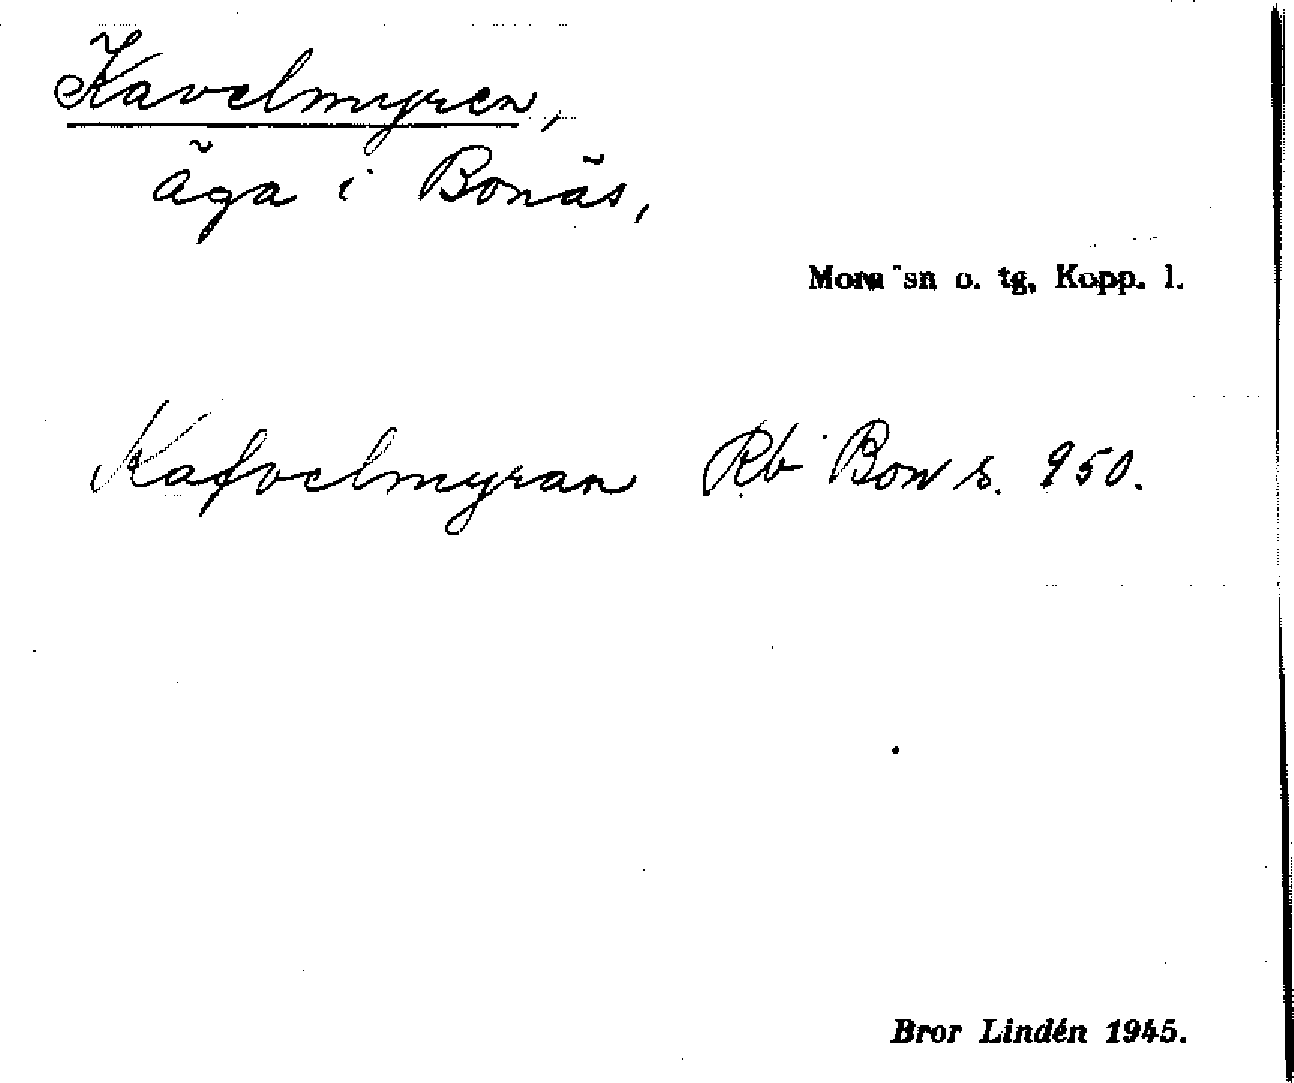 Kavelmyren,
äga i Bonäs,
Mora sn o. tg, Kopp. l.
Kafvelmyran Rb Bon s. 950.
Bror Lindén 1945.